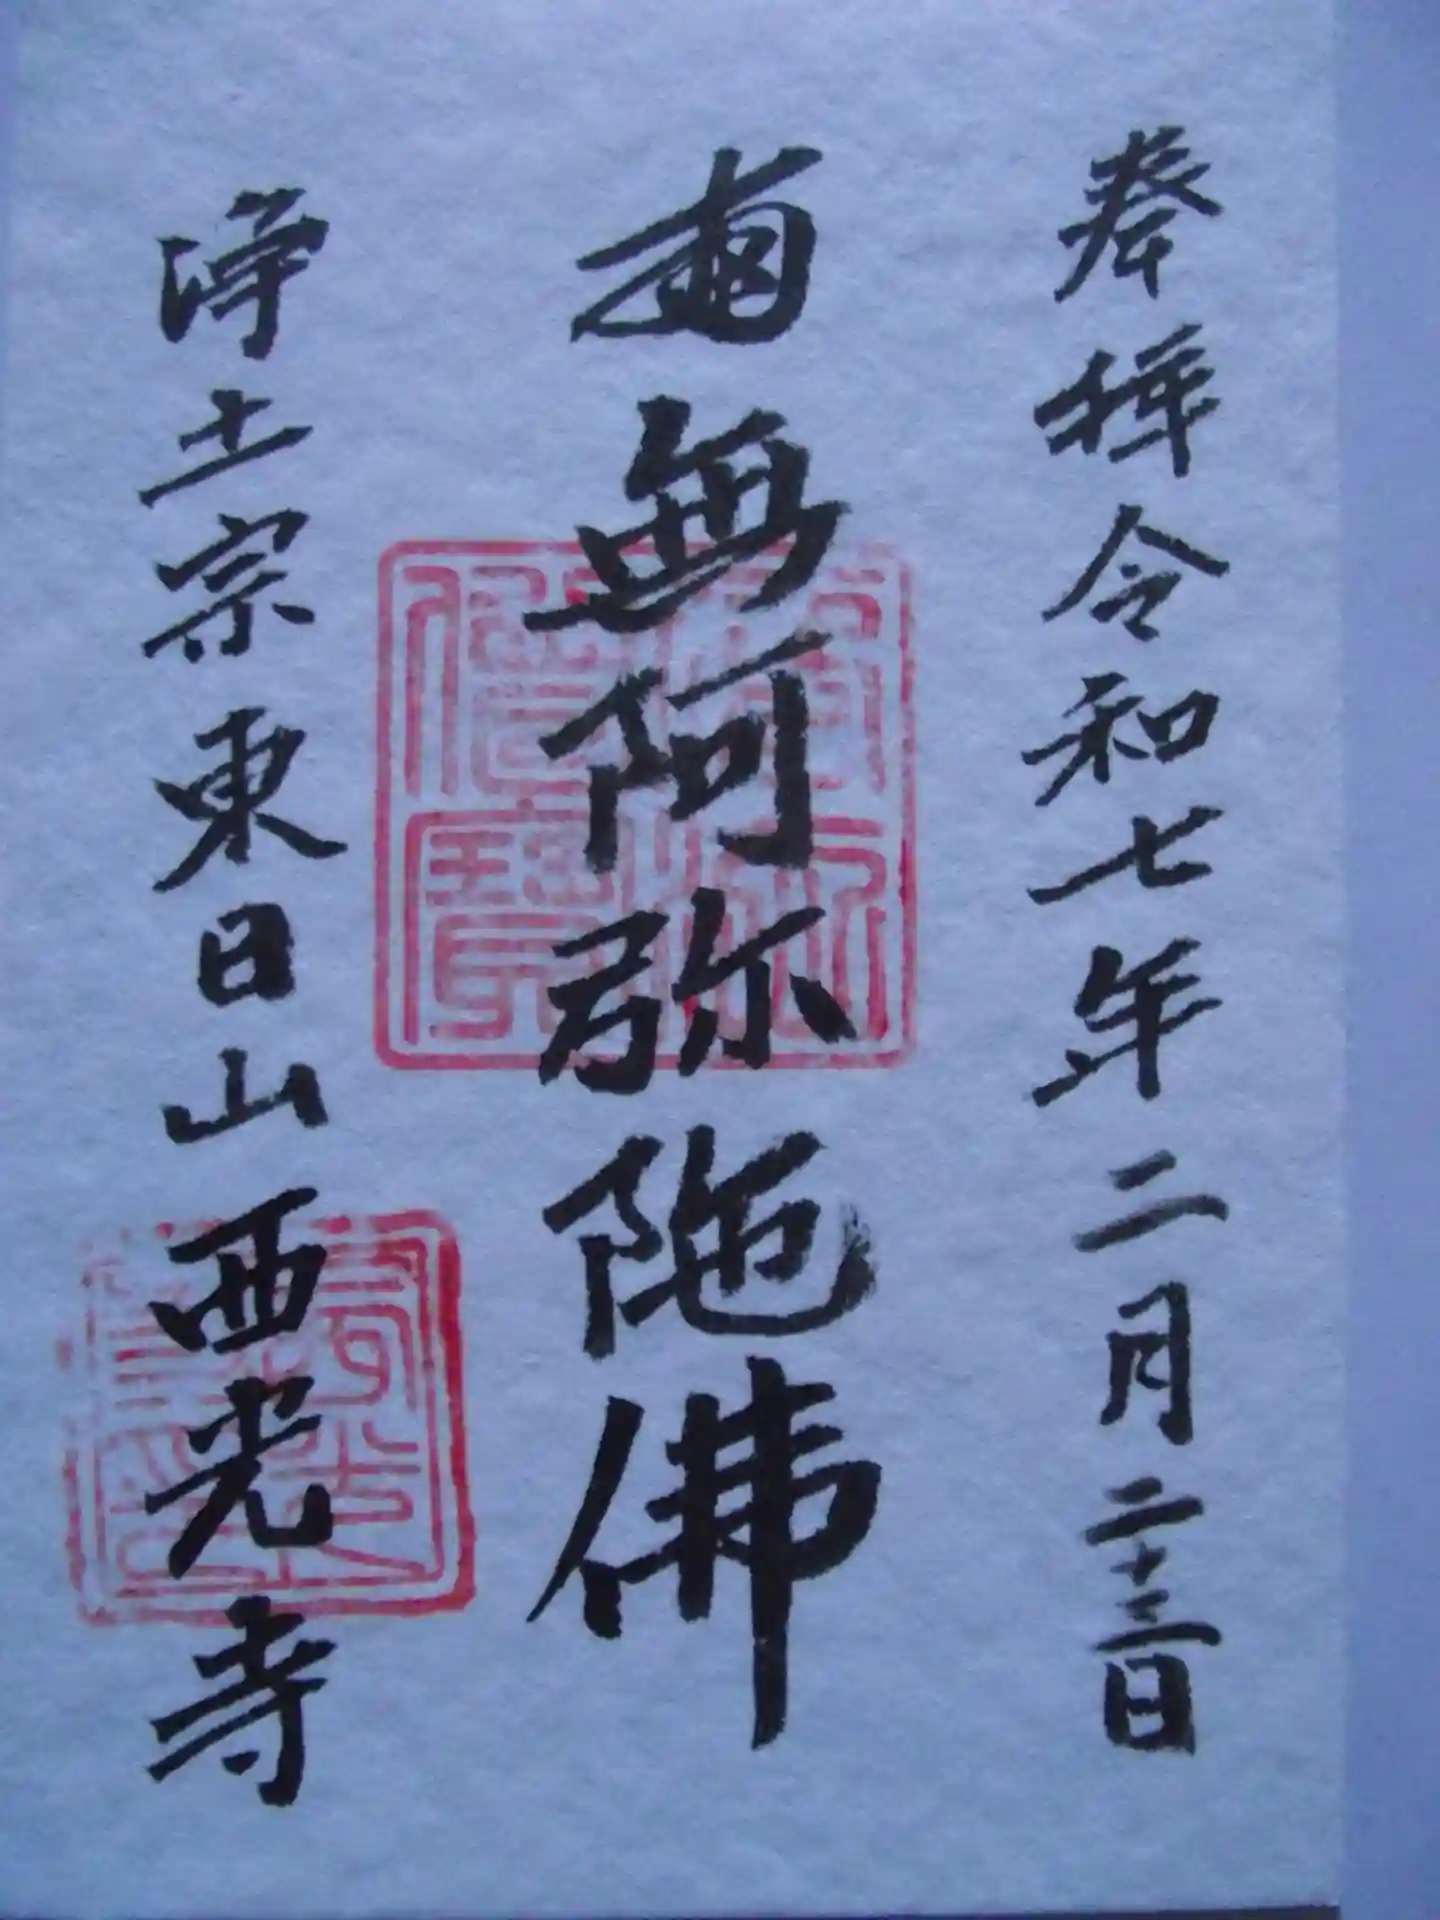 奉拝令和七年二月二十三日
南無阿弥陀佛
浄土宗東日山西光寺
佛法僧寶